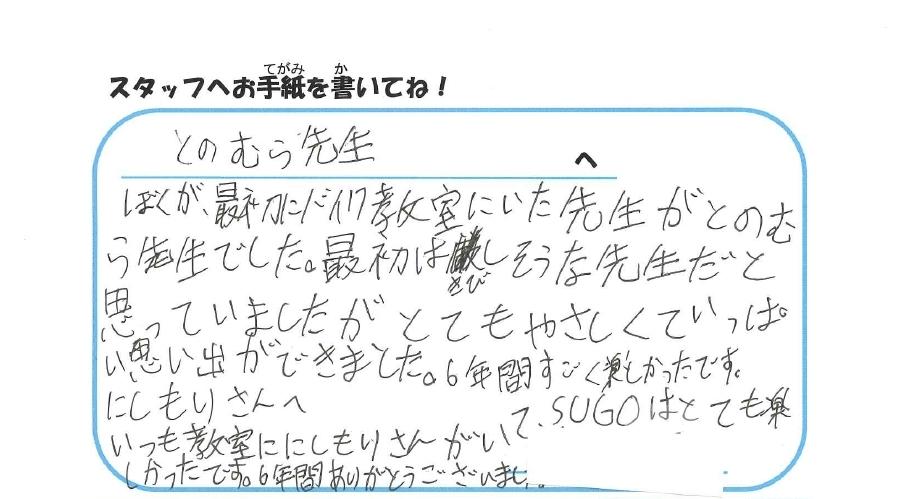 てがみ か
スタッフへお手紙を書いてね！
とのむら先生 へ
ぼくが、最初にバイク教室にいた先生がとのむ
ら先生でした。最初は厳しそうな先生だと
きび
思っていましたがとてもやさしくていっぱ
い思い出ができました。6年間すごく楽しかったです。
にしもりさんへ
いつも教室ににしもりさんがいて、SUGOはとても楽
しかったです。6年間ありがとうございまし